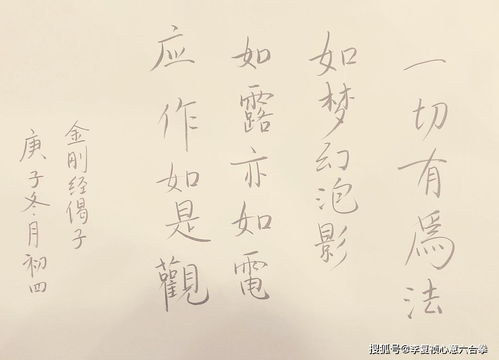 一切有為法
如梦幻泡影
如露亦如電
应作如是觀
金刚经偈子
庚子冬月初四
搜狐号@李复祯心意六合拳